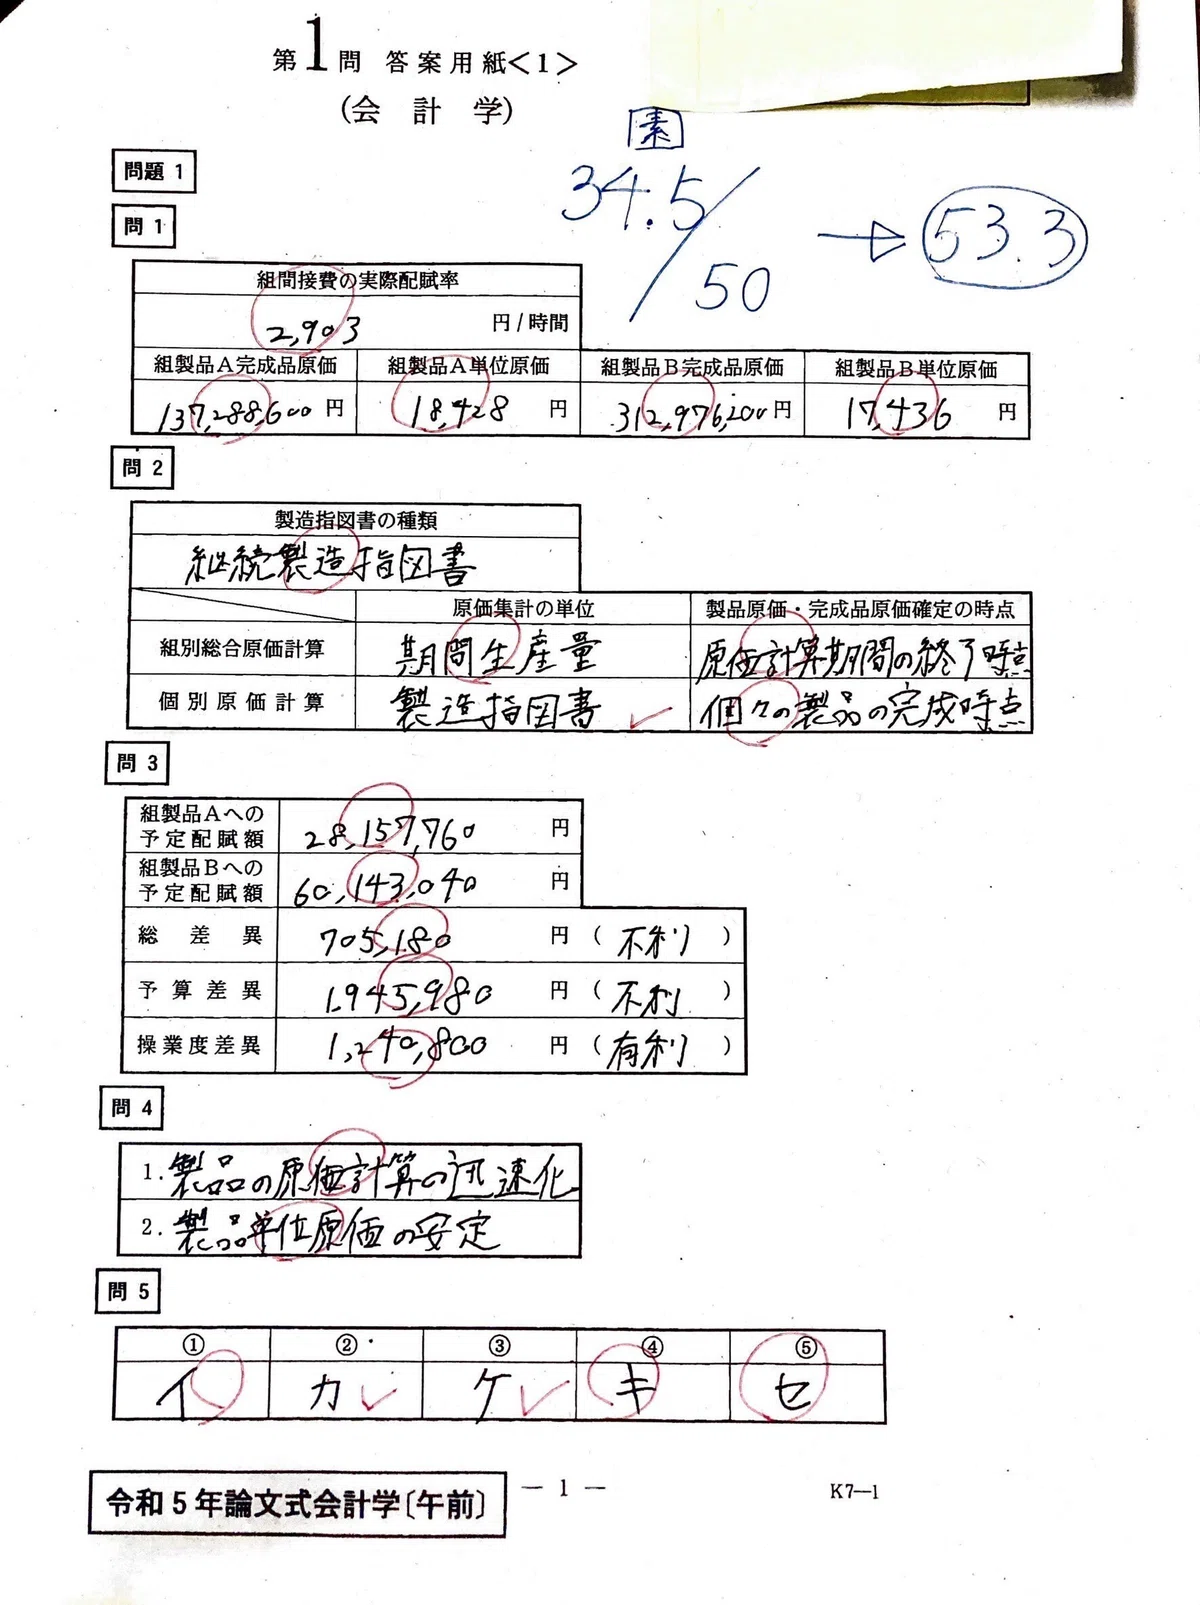 第1問 答案用紙<1>
(会計学)
素
34.5/50 → 53.3
問題 1
問 1
組間接費の実際配賦率
2,903 円/時間
組製品A完成品原価 組製品A単位原価 組製品B完成品原価 組製品B単位原価
137,288,600円 18,428 円 312,976,200円 17,436 円
問 2
製造指図書の種類
継続製造指図書
原価集計の単位 製品原価・完成品原価確定の時点
組別総合原価計算 期間生産量 原価計算期間の終了時点
個別原価計算 製造指図書 個々の製品の完成時点
問 3
組製品Aへの
予定配賦額 28,157,760 円
組製品Bへの
予定配賦額 60,143,040 円
総差異 705,180 円 (不利)
予算差異 1,945,980 円 (不利)
操業度差異 1,240,800 円 (有利)
問 4
1. 製品の原価計算の迅速化
2. 製品単位原価の安定
問 5
① ② ③ ④ ⑤
イ カ ケ キ セ
令和5年論文式会計学〔午前〕
— 1 —
K7—1